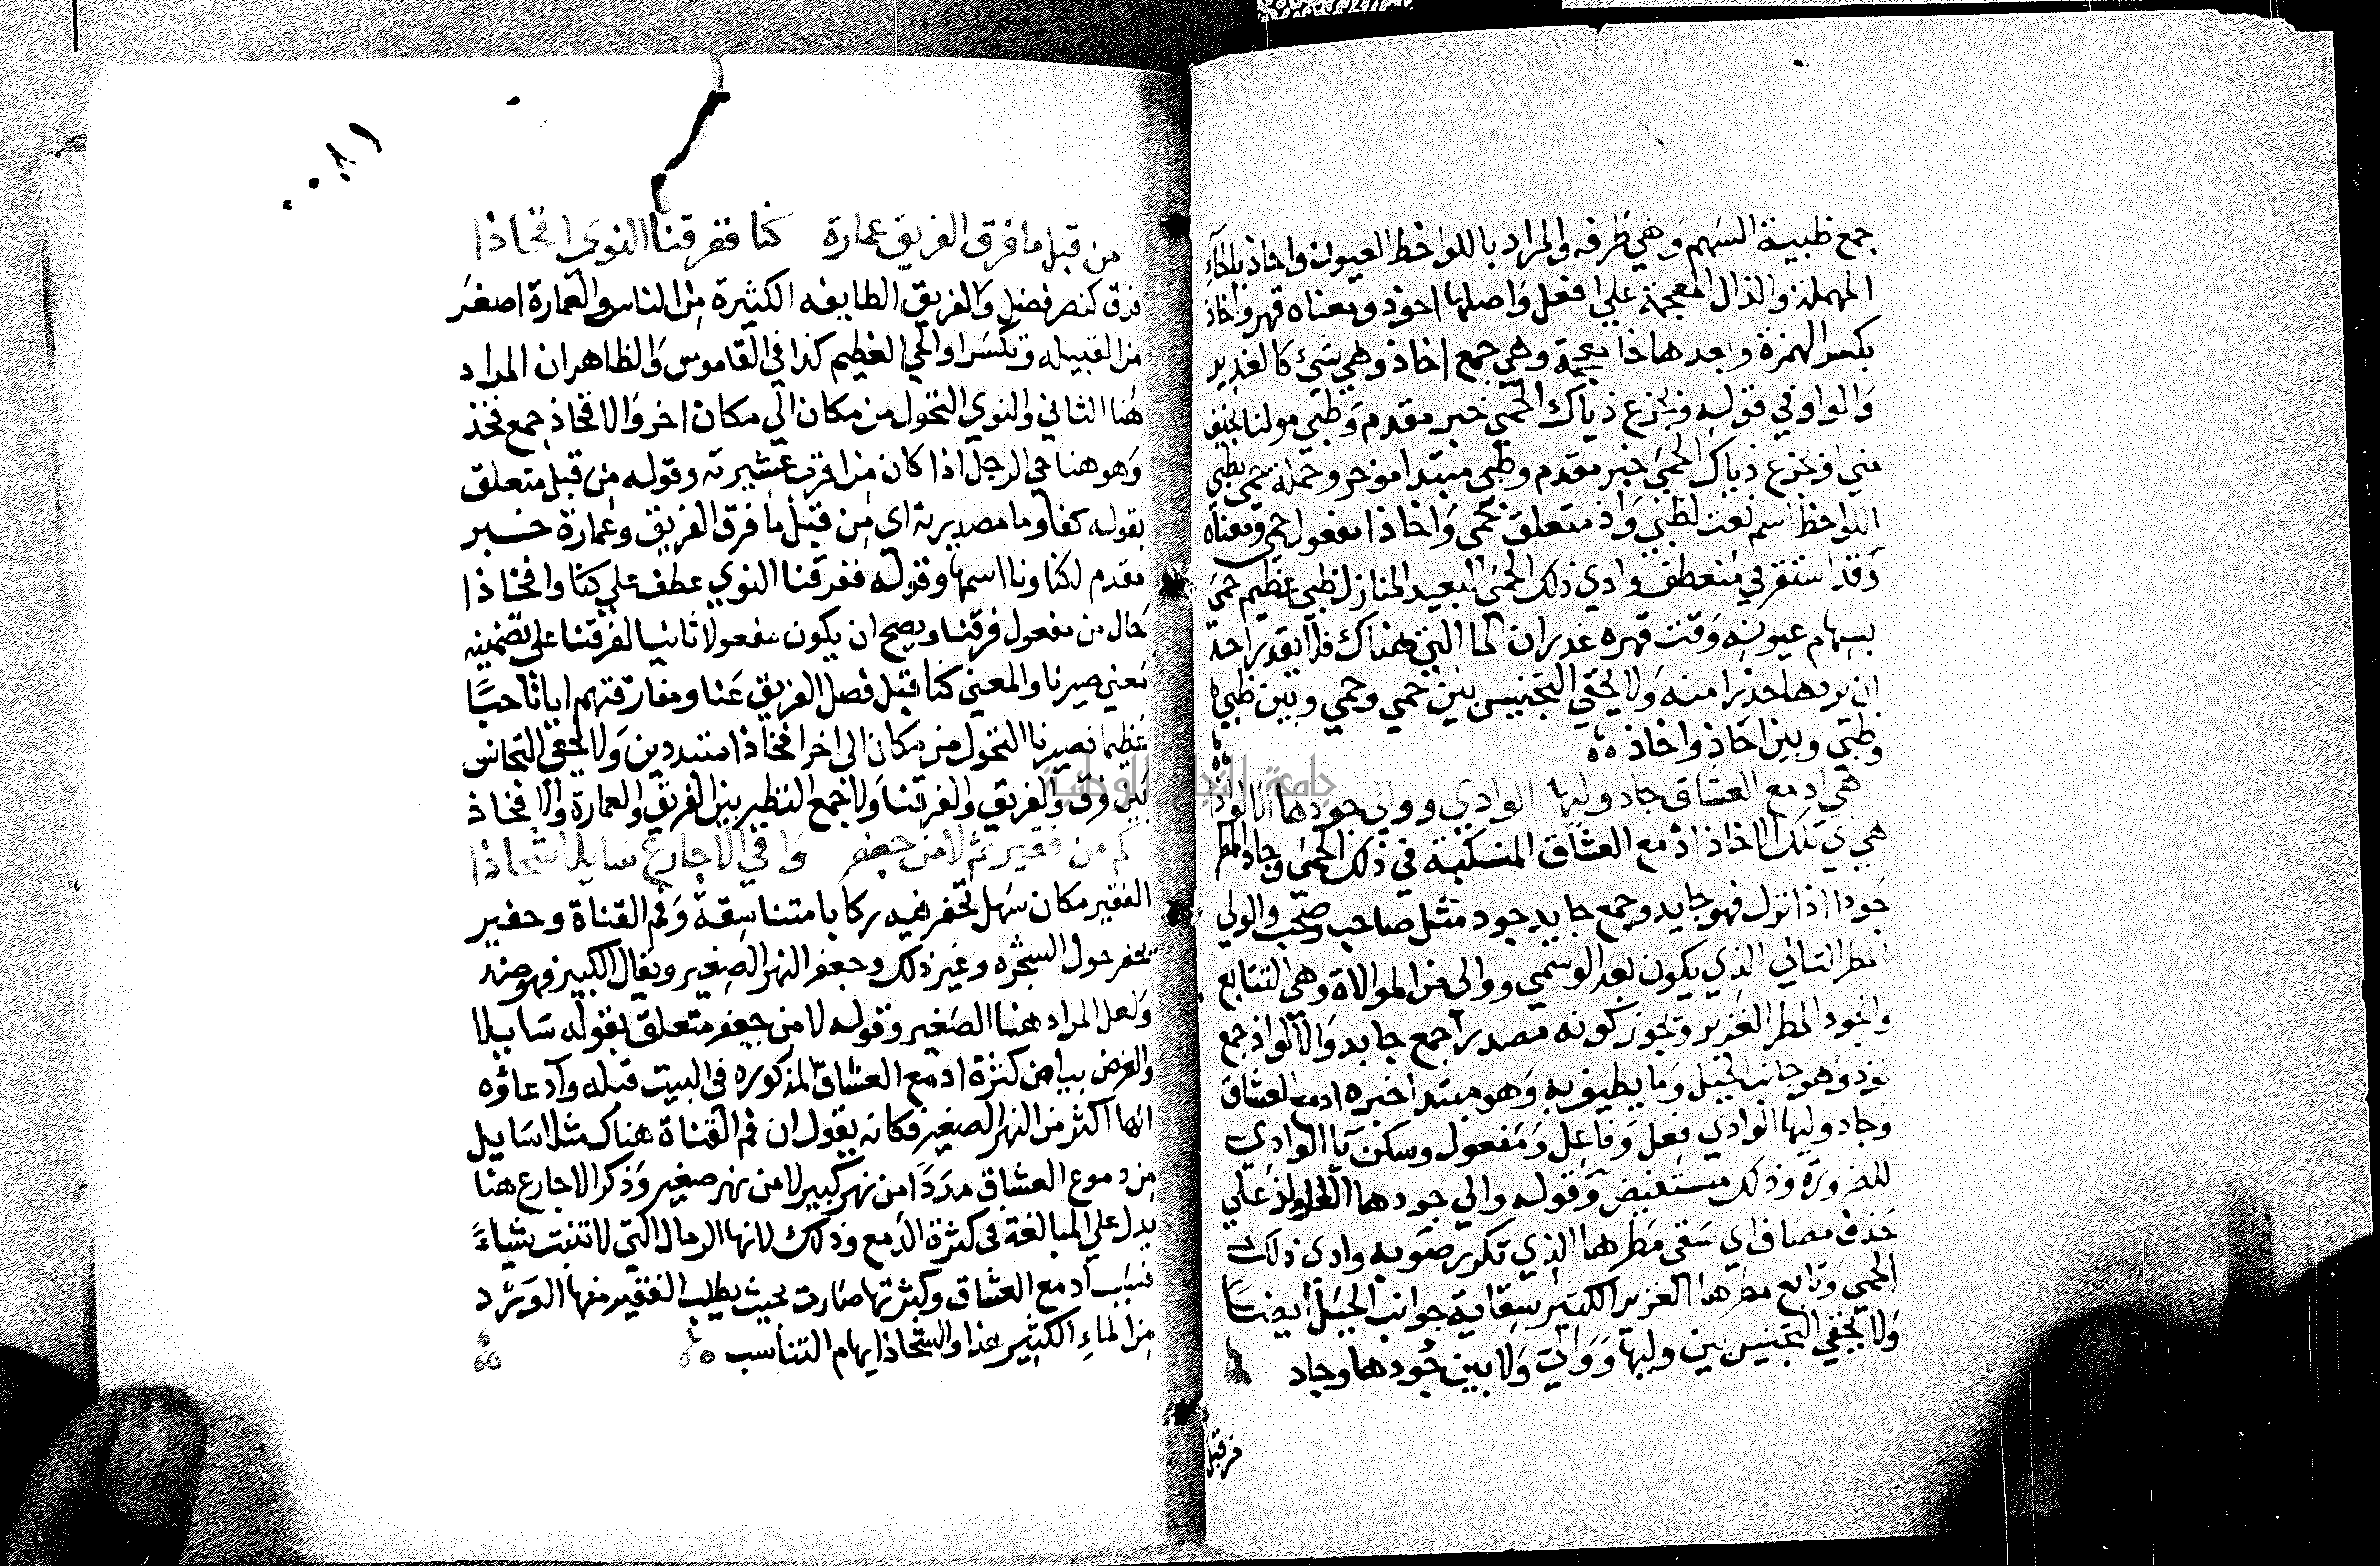 جمع ظبية السهم وهي طرفه والمراد باللواحظ العيون واحاذ بالحآء
المهملة والذال المعجمة على افعل واصلها احوذ ومعناه قهر واخاذ
بكسر الهمزة وبعدها خا معجمة وهي جمع اخاذ وهي شئ كالغدير
والواو في قوله وبجزع ذياك الحمى خبر مقدم وظبي مولنا
منى او بجزع ذياك الحمى خبر مقدم وظبي مبتدا موخر وجملة حمى بظبى
اللواحظ اسم نعت لظبي واذ متعلق بحمى واخاذا مفعول حمى ومعناه
وقد استقر في منعطف وادي ذلك الحمى البعيد المنازل ظبي عظيم حمى
بسهام عيونه وقت قهره غدران الما التي هناك فلا يقدر احد
ان يردها حذرا منه ولا يخفي التجنيس بين حمي وحمي وبين ظبي
وظبى وبين احاذ واخاذ
هي ادمع العشاق جاد وليها الوادي ووالى جودها الالواذا
هي اي تلك الاخاذ ادمع العشاق المنسكبة في ذلك الحمى وجاد المطر
جودا اذا نزل فهو جايد وجمع جايد جود مثل صاحب وصحب والولي
المطر التالي الذي يكون بعد الوسمي ووالى من الموالاة وهي التتابع
والجود المطر الغزير وتجوز كونه مصدرا جمع جايد والالواذ جمع
لوذ وهو جانب الجبل وما يطيف به وهو مبتدا خبره ادمع العشاق
وجاد وليها الوادي فعل وفاعل ومفعول وسكن يا الوادي
للضرورة وذلك مستفيض وقوله والي جودها الالواذ علي
حذف مضاف اي سقى مطرها الذي تكرر صوبه وادى ذلك
الحمي وتابع مطرها الغزير الكثير سقاية جوانب الجبل ايضا
ولا يخفي التجنيس بين وليها ووالى ولا بين جودها وجاد
من قبل
من قبل ما فرق الفريق عمارة كنا ففرقنا النوى افخاذا
فرق كنصر فصل والفريق الطايفه الكثيرة من الناس والعمارة اصغر
من القبيله وتكسر او الحي العظيم كذا في القاموس والظاهر ان المراد
هنا الثاني والنوي التحول من مكان الى مكان اخر والافخاذ جمع فخذ
وهو هنا حي الرجل اذا كان من اقرب عشيرته وقوله من قبل متعلق
بقوله كنا وما مصدرية اى من قبل ما فرق الفريق وعمارة خبر
مقدم لكنا ونا اسمها وقوله ففرقنا النوي عطف علي كنا وافخاذا
حال من مفعول فرقنا ويصح ان يكون مفعولا ثانيا لفرقنا على تضمينه
معني صيرنا والمعنى كنا قبل فصل الفريق عنا ومفارقتهم ايانا حيا
عظيما فصيرنا التحول من مكان الى اخر افخاذا متبددين ولا يخفى التجانس
بين فرق والفريق والفرقنا ولا جمع النظير بين الفريق والعمارة والافخاذ
كم من فقير ثم لا من جعفر وافى الاجارع سايلا شحاذا
الفقير مكان سهل تحفر فيه ركايا متناسقة وفم القناة وحفير
تحفر حول الشجره وغير ذلك وجعفر النهر الصغير ويقال الكبير فهو ضد
ولعل المراد هنا الصغير وقوله لا من جعفر متعلق بقوله سايلا
والغرض بيان كثرة ادمع العشاق المذكوره فى البيت قبله وادعاؤه
انها اكثر من النهر الصغير فكانه يقول ان فم القناة هناك مثلا سايل
من دموع العشاق مددا من نهر كبير لا من نهر صغير وذكر الاجارع هنا
يدل علي المبالغة في كثرة الدمع وذلك لانها الرمال التى لا تنبت شياء
فبسبب ادمع العشاق وكثرتها صارت بحيث يطلب الفقير منها الورد
من الماء الكثير هذا والشحاذ ايهام التناسب